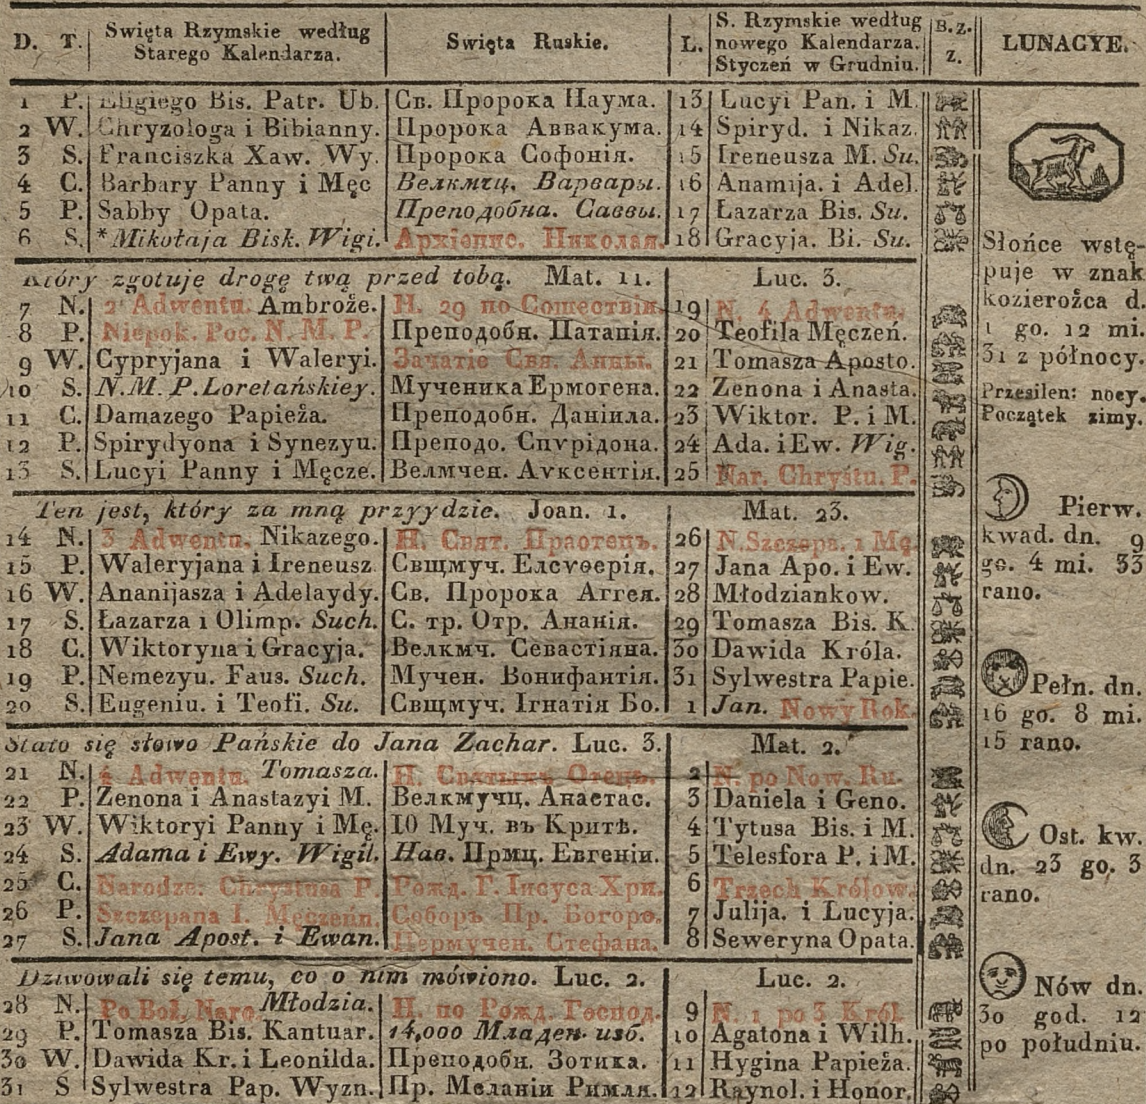 D. T. Swięta Rzymskie według Starego Kalendarza. Swięta Ruskie. L. S. Rzymskie według nowego Kalendarza. Styczeń w Grudniu. B.z. z. LUNACYE.
1 P. Eligiego Bis. Patr. Ub. Св. Пророка Наума. 13 Lucyi Pan. i M.
2 W. Chryzologa i Bibianny. Пророка Аввакума. 14 Spiryd. i Nikaz.
3 S. Franciszka Xaw. Wy. Пророка Софонія. 15 Ireneusza M. Su.
4 C. Barbary Panny i Męc Велкмтц. Варвары. 16 Anamija. i Adel.
5 P. Sabby Opata. Преподобна. Саввы. 17 Łazarza Bis. Su.
6 S. *Mikołaja Bisk. Wigi. Архіепис. Николая. 18 Gracyja. Bi. Su.
Który zgotuje drogę twą przed tobą. Mat. 11. Luc. 3.
7 N. 2 Adwentu. Ambroże. Н. 29 по Сошествіи. 19 N. 4 Adwentu.
8 P. Niepok. Poc. N. M. P. Преподобн. Патапія. 20 Teofila Męczeń.
9 W. Cypryjana i Waleryi. Зачатіе Свя. Анны. 21 Tomasza Aposto.
10 S. N. M. P. Loretańskiey. Мученика Ермогена. 22 Zenona i Anasta.
11 C. Damazego Papieża. Преподобн. Даніила. 23 Wiktor. P. i M.
12 P. Spirydyona i Synezyu. Преподо. Спѵрідона. 24 Ada. i Ew. Wig.
13 S. Lucyi Panny i Męcze. Велмчен. Аѵксентія. 25 Nar. Chrystu. P.
Ten jest, który za mną przyydzie. Joan. 1. Mat. 23.
14 N. 3 Adwentu. Nikazego. Н. Свят. Праотецъ. 26 N. Szczepa. i Mę.
15 P. Waleryjana i Ireneusz Свщмуч. Елеѵѳерія. 27 Jana Apo. i Ew.
16 W. Ananijasza i Adelaydy. Св. Пророка Аггея. 28 Młodziankow.
17 S. Łazarza i Olimp. Such. С. тр. Отр. Ананія. 29 Tomasza Bis. K.
18 C. Wiktoryna i Gracyja. Велкмч. Севастіяна. 30 Dawida Króla.
19 P. Nemezyu. Faus. Such. Мучен. Вонифантія. 31 Sylwestra Papie.
20 S. Eugeniu. i Teofi. Su. Свщмуч. Ігнатія Бо. 1 Jan. Nowy Rok.
Stało się słowo Pańskie do Jana Zachar. Luc. 3. Mat. 2.
21 N. 4 Adwentu. Tomasza. Н. Святыхъ Отецъ. 2 N. po Now. Ru.
22 P. Zenona i Anastazyi M. Велкмучц. Анастас. 3 Daniela i Geno.
23 W. Wiktoryi Panny i Mę. 10 Муч. въ Критѣ. 4 Tytusa Bis. i M.
24 S. Adama i Ewy. Wigil. Нав. Прмц. Евгеніи. 5 Telesfora P. i M.
25 C. Narodze: Chrystusa P. Рожд. Г. Іисуса Хри. 6 Trzech Królow.
26 P. Szczepana I. Męczenn. Соборъ Пр. Богоро. 7 Julija. i Lucyja.
27 S. Jana Apost. i Ewan. Пермучен. Стефана. 8 Seweryna Opata.
Dziwowali się temu, co o nim mówiono. Luc. 2. Luc. 2.
28 N. Po Boż. Naro. Młodzia. Н. по Рожд. Господ. 9 N. 1 po 3 Król
29 P. Tomasza Bis. Kantuar. 14,000 Младен. изб. 10 Agatona i Wilh.
30 W. Dawida Kr. i Leonilda. Преподобн. Зотика. 11 Hygina Papieża.
31 S Sylwestra Pap. Wyzn. Пр. Меланіи Римля. 12 Raynol. i Honor.
Słońce wstę-
puje w znak
kozierożca d.
1 go. 12 mi.
31 z północy.
Przesilen: nocy.
Początek zimy.
Pierw.
kwad. dn. 9
go. 4 mi. 33
rano.
Pełn. dn.
16 go. 8 mi.
15 rano.
Ost. kw.
dn. 23 go. 3
rano.
Nów dn.
30 god. 12
po południu.